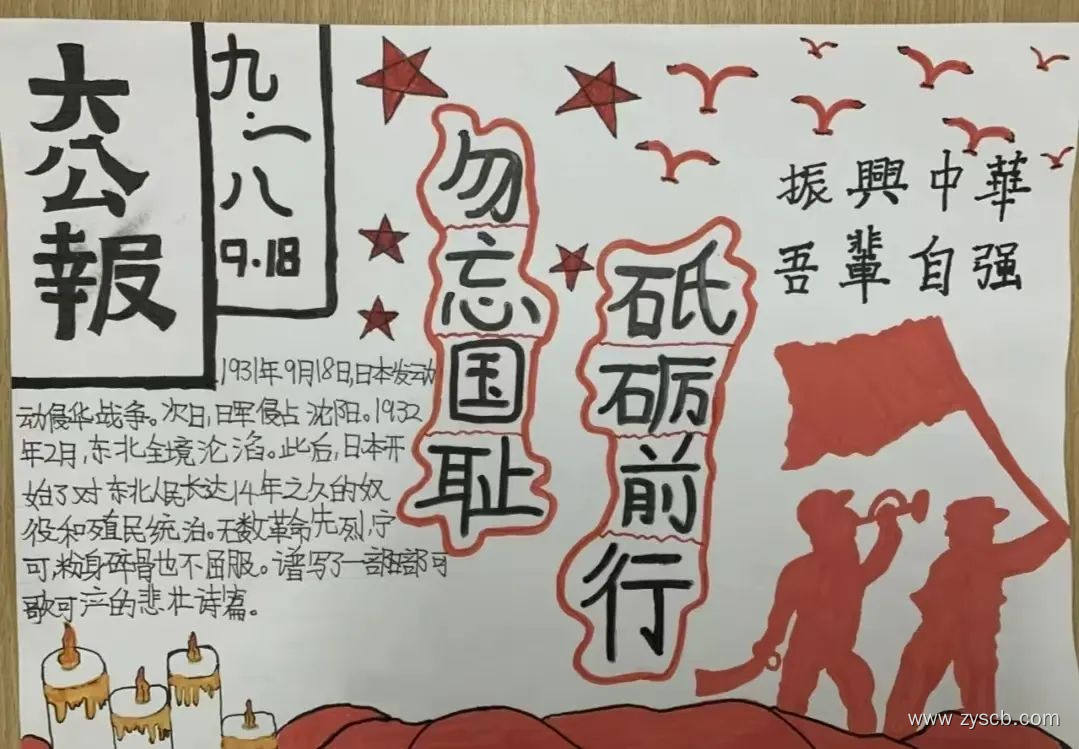 大公報
九·一八
9·18
勿忘国耻
砥砺前行
振興中華
吾輩自强
1931年9月18日,日本发动
动侵华战争。次日,日军侵占沈阳。1932
年2月,东北全境沦滔。此后,日本开
始了对东北人民长达14年之久的奴
役和殖民统治。无数革命先烈,宁
可,粉身碎骨也不屈服。谱写了一部部可
歌可泣的悲壮诗篇。
www.zyscb.com